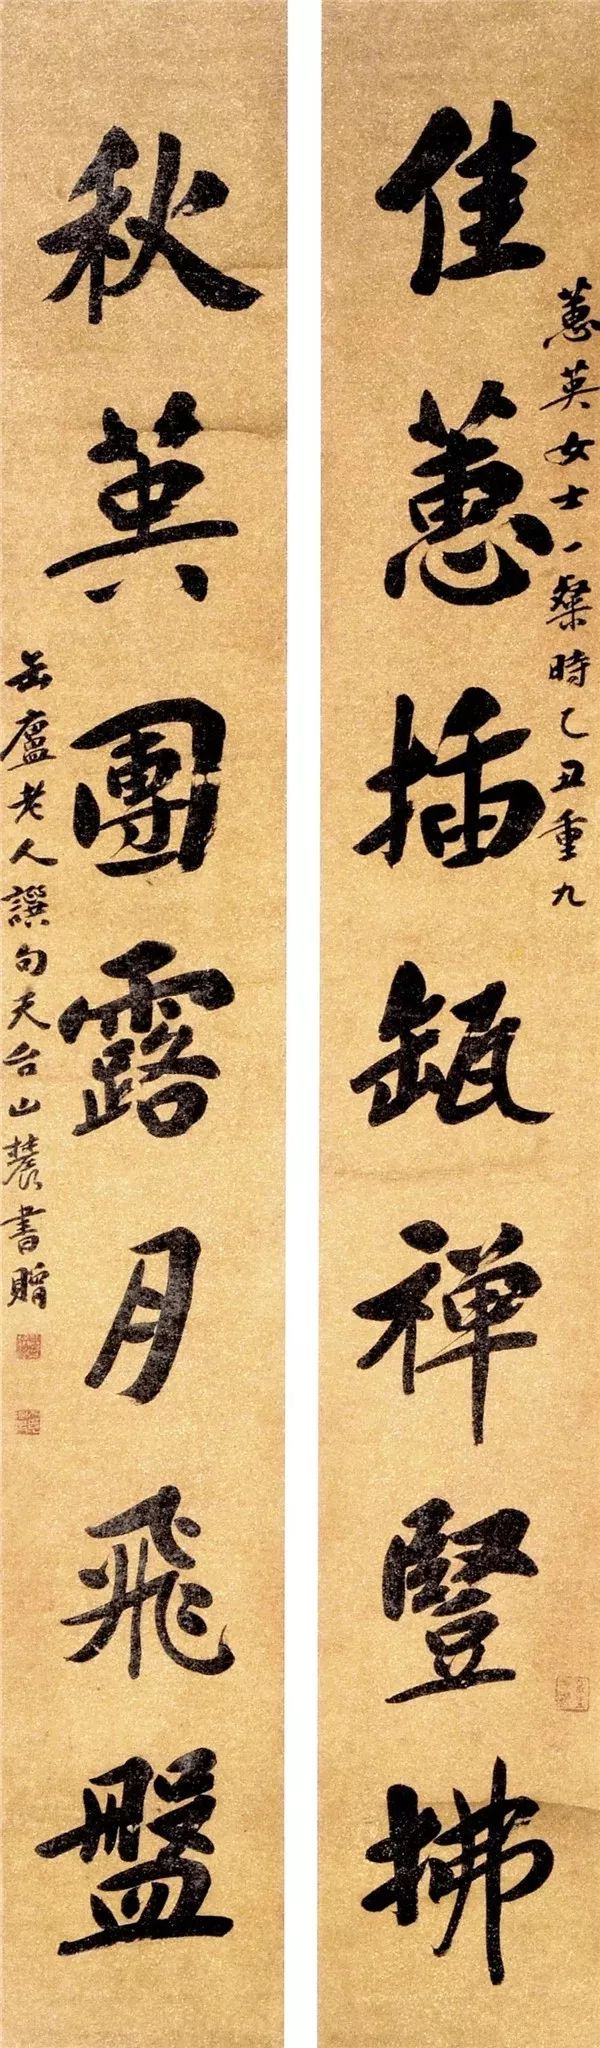 佳蕙插缻禪豎拂
蕙英女士一粲時乙丑重九
秋英團露月飛盤
缶廬老人譔句天台山農書贈